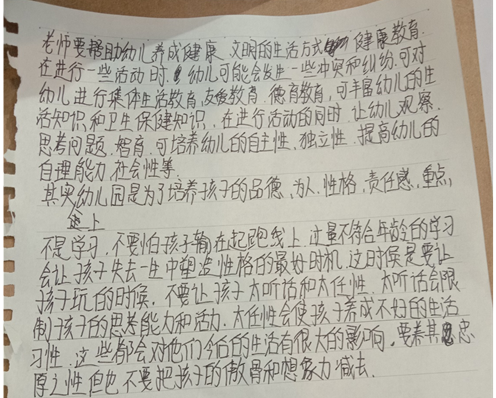 老师要帮助幼儿养成健康、文明的生活方式 健康教育.
在进行一些活动时.幼儿可能会发生一些冲突和纠纷.可对
幼儿进行集体生活教育,友爱教育.德育教育,可丰富幼儿的生
活知识和卫生保健知识.在进行活动的同时.让幼儿观察.
思考问题.智育.可培养幼儿的自主性.独立性.提高幼儿的
自理能力.社会性等.
其实幼儿园是为了培养孩子的品德、为人、性格,责任感,重点,
不是学习.不要怕孩子输在起跑线上.过量不符合年龄的学习
会让孩子失去一生中塑造性格的最好时机.这时候是要让
孩子玩的时候.不要让孩子太听话和太任性.太听话会限
制孩子的思考能力和活力.太任性会使孩子养成不好的生活
习性.这些都会对他们今后的生活有很大的影响.要养其忠
厚之性但也不要把孩子的傲骨和想象力减去.